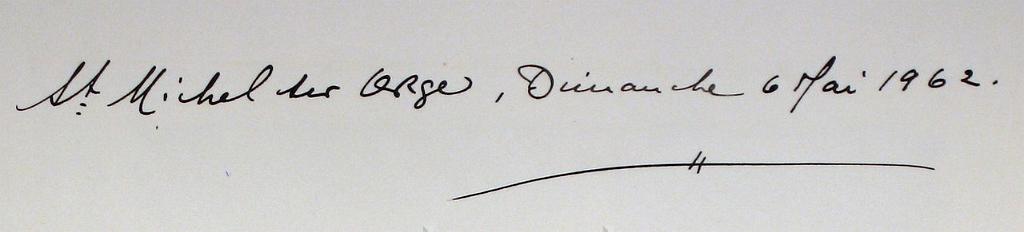 St. Michel sur Orge, Dimanche 6 Mai 1962.